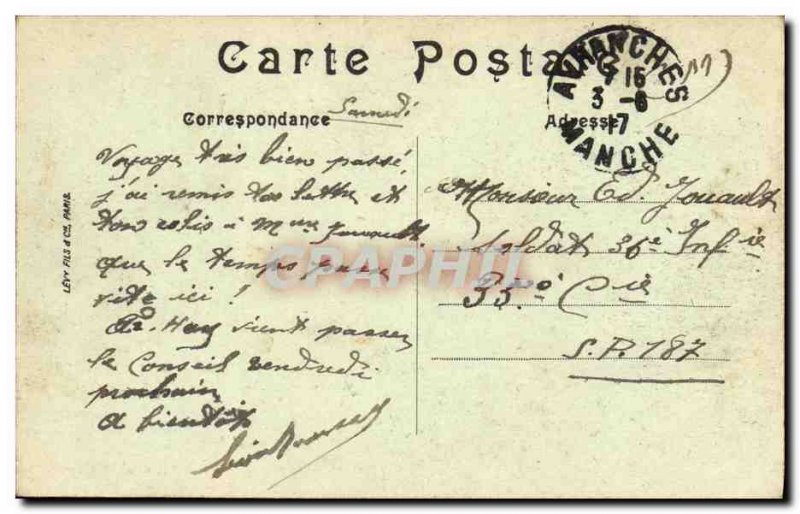 Carte Posta
AVRANCHES
15
3-6
17
MANCHE
Correspondance
Samedi
Adresse
Voyage très bien passé,
j'ai remis ta lettre et
ton colis à Mme Jouault.
que le temps passe
vite ici !
vient passer
le Conseil vendredi
prochain
A bientôt
Monsieur Ed. Jouault
Soldat 36e Infie
33e Cie
S.P. 187
LÉVY FILS & Cie, PARIS
CPAPHIL